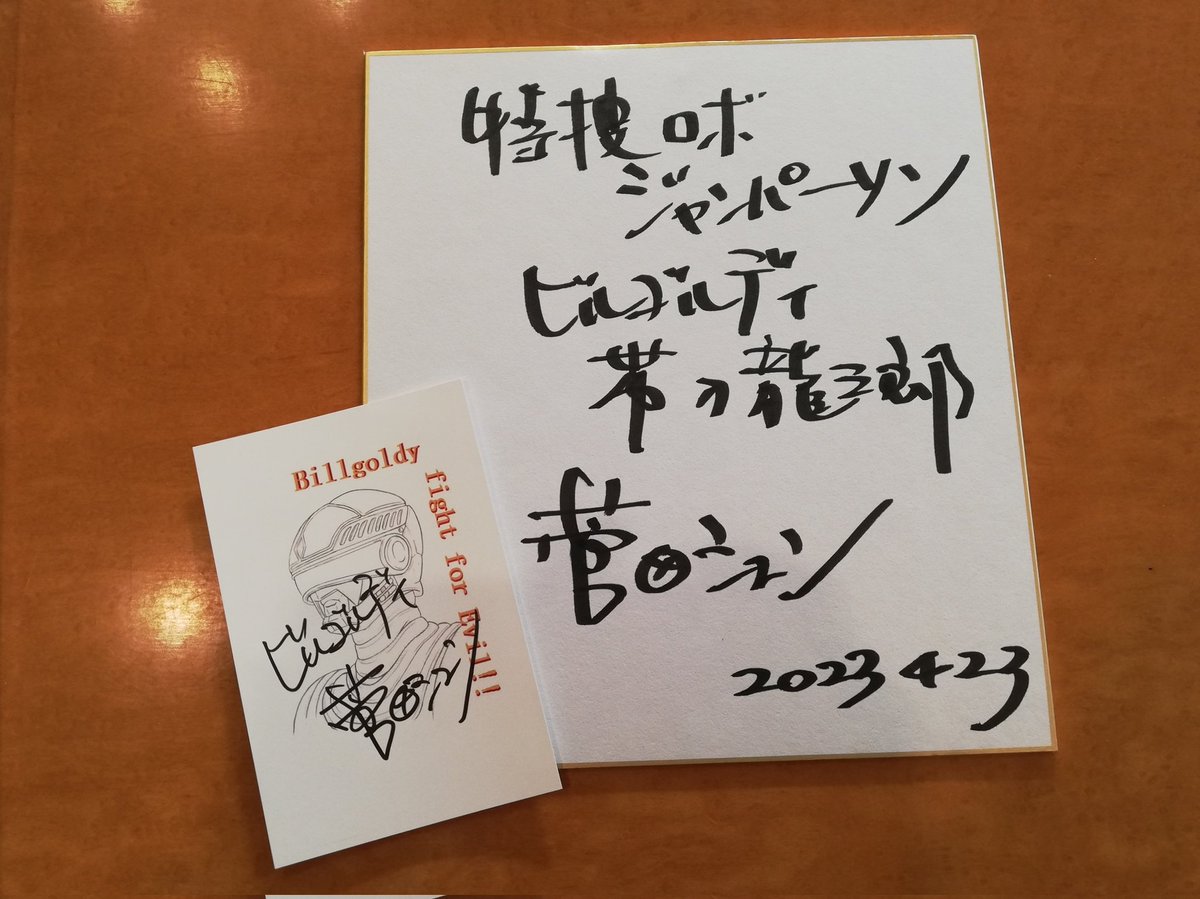 特捜ロボ
ジャンパーソン
ビルゴルディ
帯刀龍三郎
菅田シュン
2023 4 23
Billgoldy
fight for Evil!!
ビルゴルディ
菅田シュン